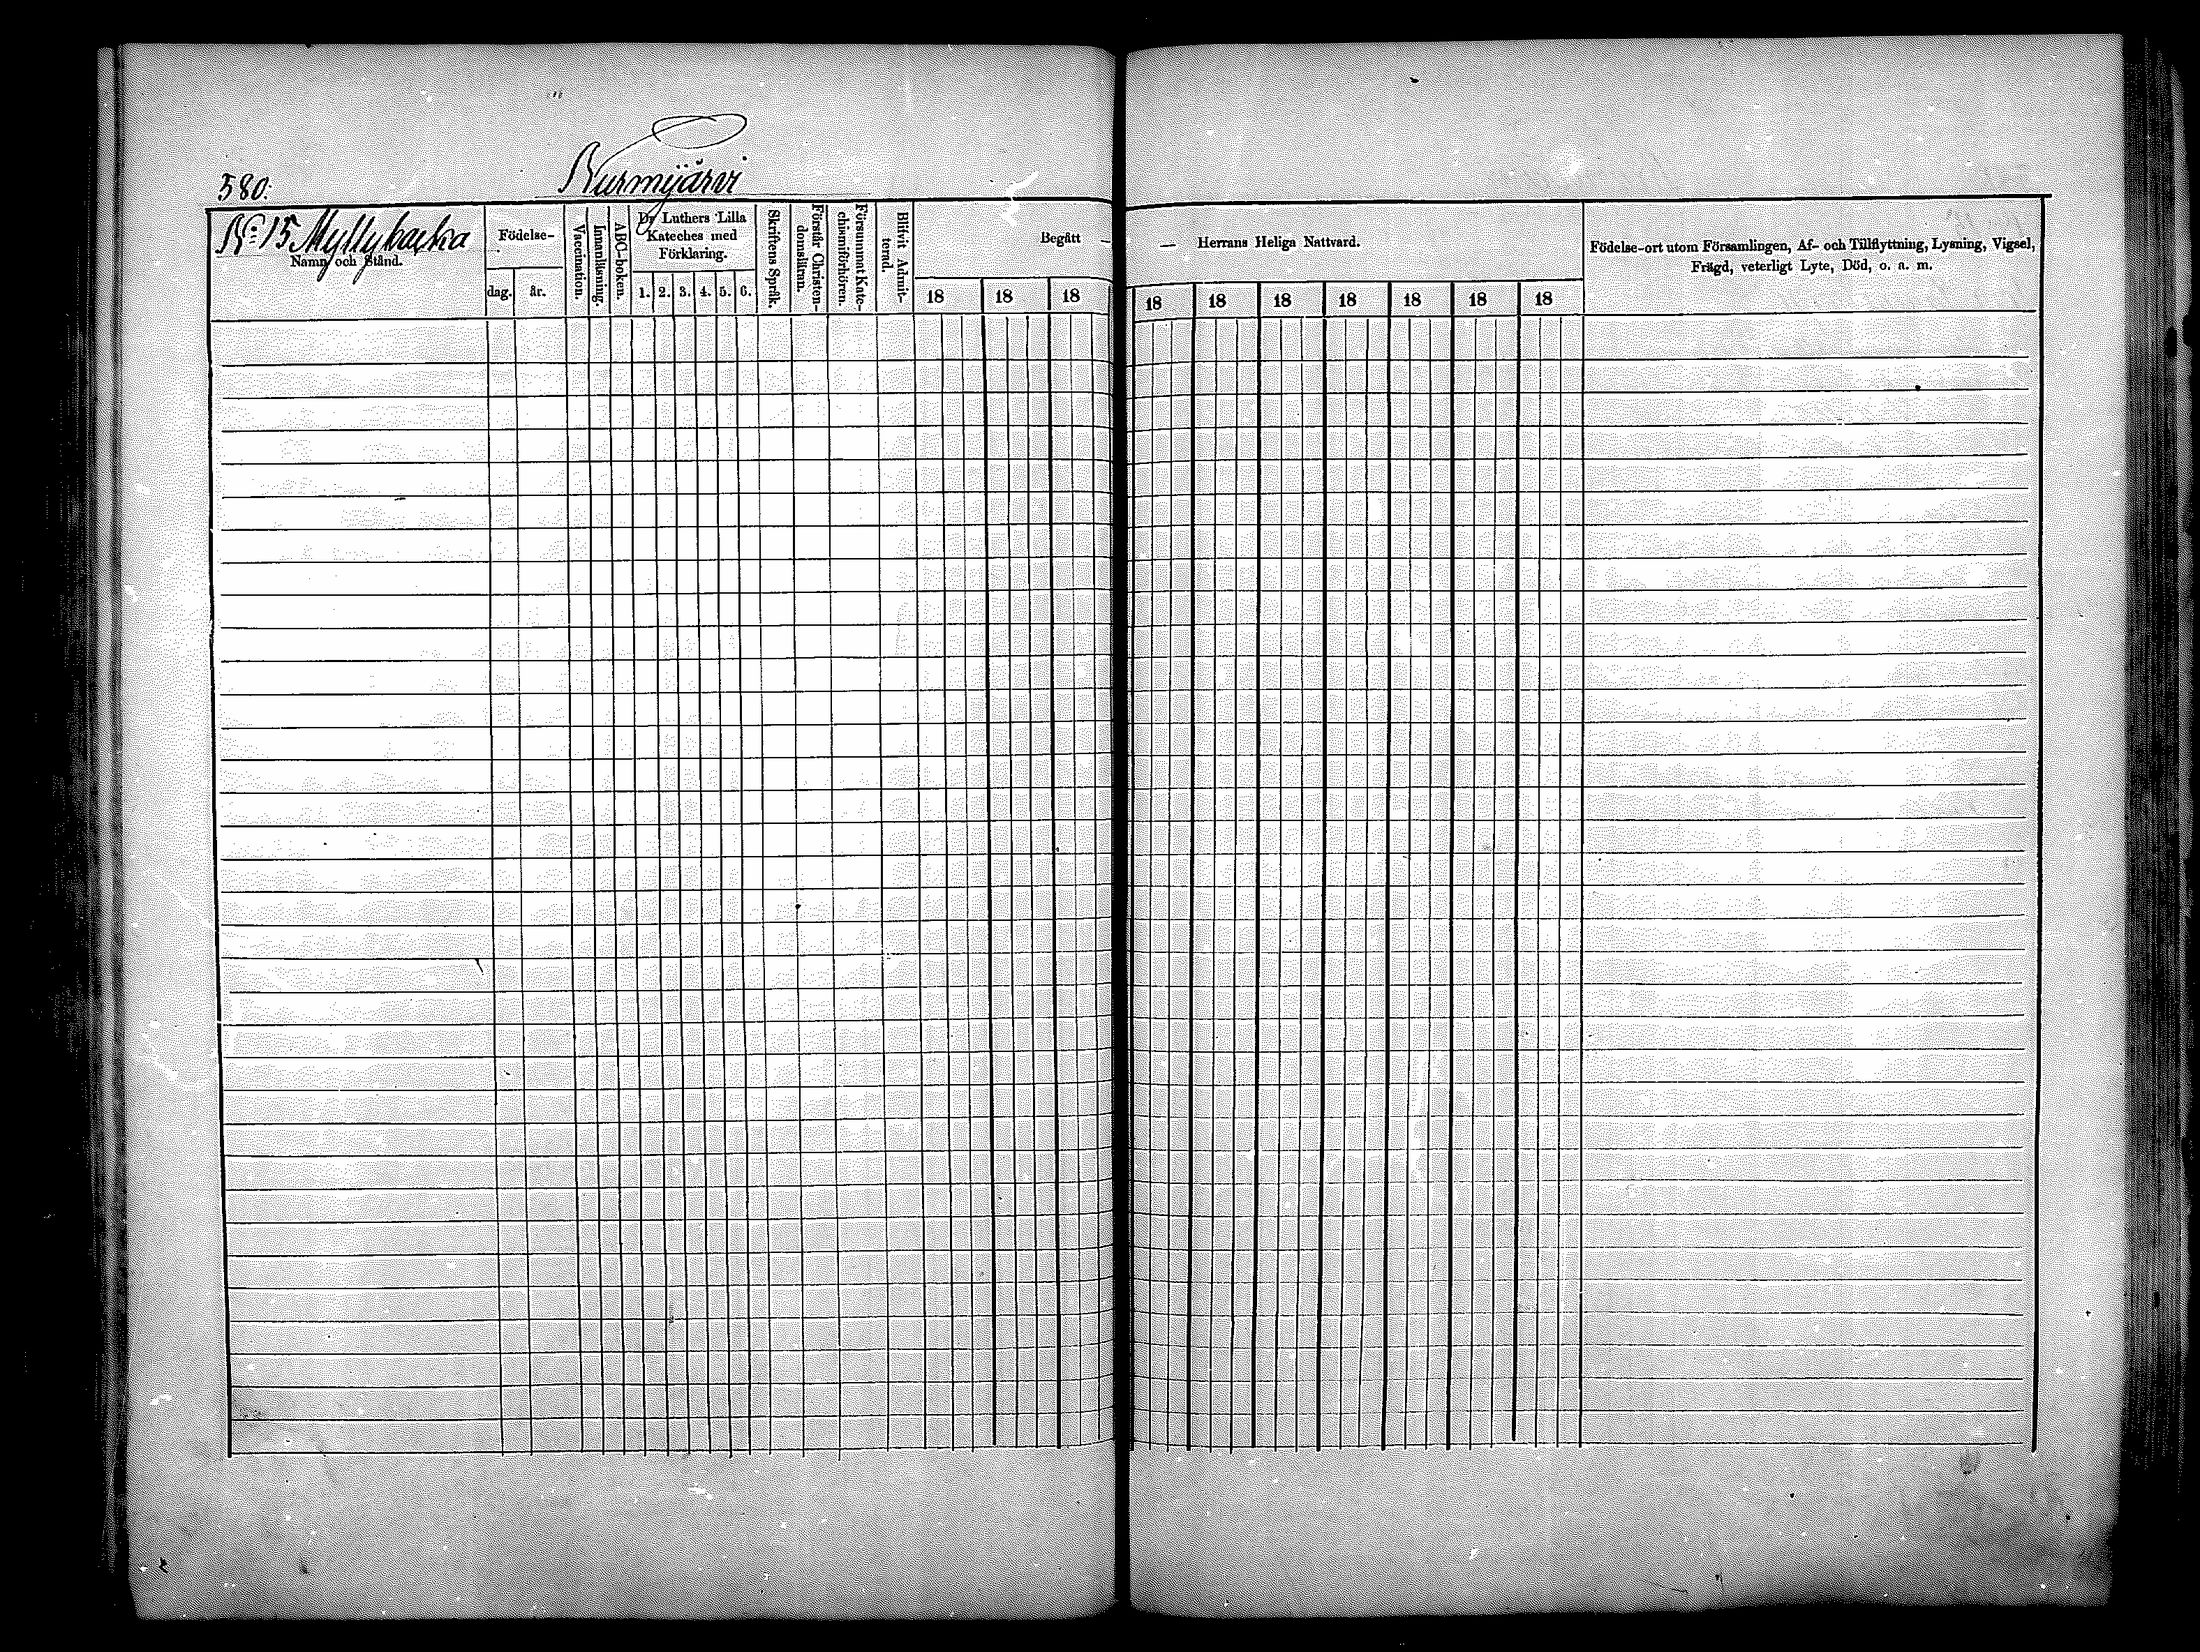 580.
Nurmijärvi
No 15 Myllybacka
Namn och Stånd.
Födelse-
dag.
år.
Vaccination.
Innanläsning.
ABC-boken.
Dr Luthers Lilla
Kateches med
Förklaring.
1. 2. 3. 4. 5. 6.
Skriftens Språk.
Förstår Christen-
domslüran.
Försummat Kate-
chismiförhören.
Blifvit Admit-
terad.
Begått —
18 18 18
— Herrans Heliga Nattvard.
18 18 18 18 18 18 18
Födelse-ort utom Församlingen, Af- och Tillflyttning, Lysning, Vigsel,
Frägd, veterligt Lyte, Död, o. a. m.